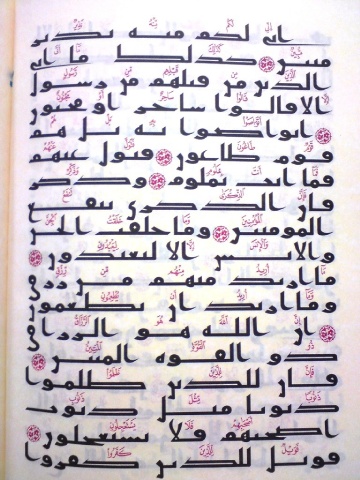 انى لكم منه نذير
مبين كذلك ما اتى
الذين من قبلهم من رسول
الا قالوا ساحر او مجنون
اتواصوا به بل هم
قوم طاغون فتول عنهم
فما انت بملوم وذكر
فان الذكرى تنفع
المومنين وما خلقت الجن
والانس الا ليعبدون
ما اريد منهم من رزق
وما اريد ان يطعمون
ان الله هو الرزاق
ذو القوة المتين
فان للذين ظلموا
ذنوبا مثل ذنوب
اصحبهم فلا يستعجلون
فويل للذين كفروا